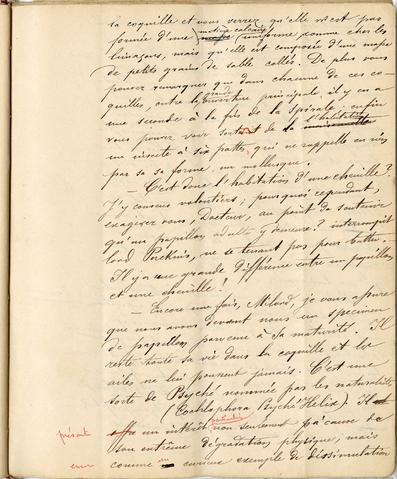 la coquille et vous verrez qu'elle n'est pas
formée d'une matière calcaire uniforme comme chez les
limaçons, mais qu'elle est composée d'une masse
de petits grains de sable collés. De plus vous
pouvez remarquer que dans chacune de ces co-
quilles, outre la grande ouverture principale il y en a
une seconde à la fin de la spirale; enfin
vous pouvez voir sortant de l'habitation
un insecte à six pattes, qui ne rappelle en rien
par sa forme, un mollusque.
— C'est donc l'habitation d'une chenille?
J'y consens volontiers; pourquoi cependant,
exagérez vous, Docteur, au point de soutenir
qu'un papillon adulte y demeure? interrompit
lord Puckins, ne se tenant pas pour battu.
Il y a une grande différence entre un papillon
et une chenille!
— Encore une fois, Milord, je vous assure
que nous avons devant nous un specimen
de papillon parvenu à sa maturité. Il
reste toute sa vie dans la coquille et les
ailes ne lui poussent jamais. C'est une
sorte de Psyché nommée par les naturalistes
(Cochlophora Psyche Helix). Il
présente un intérêt non seulement à cause de
son extrême dégradation physique, mais
comme un curieux exemple de dissimulation